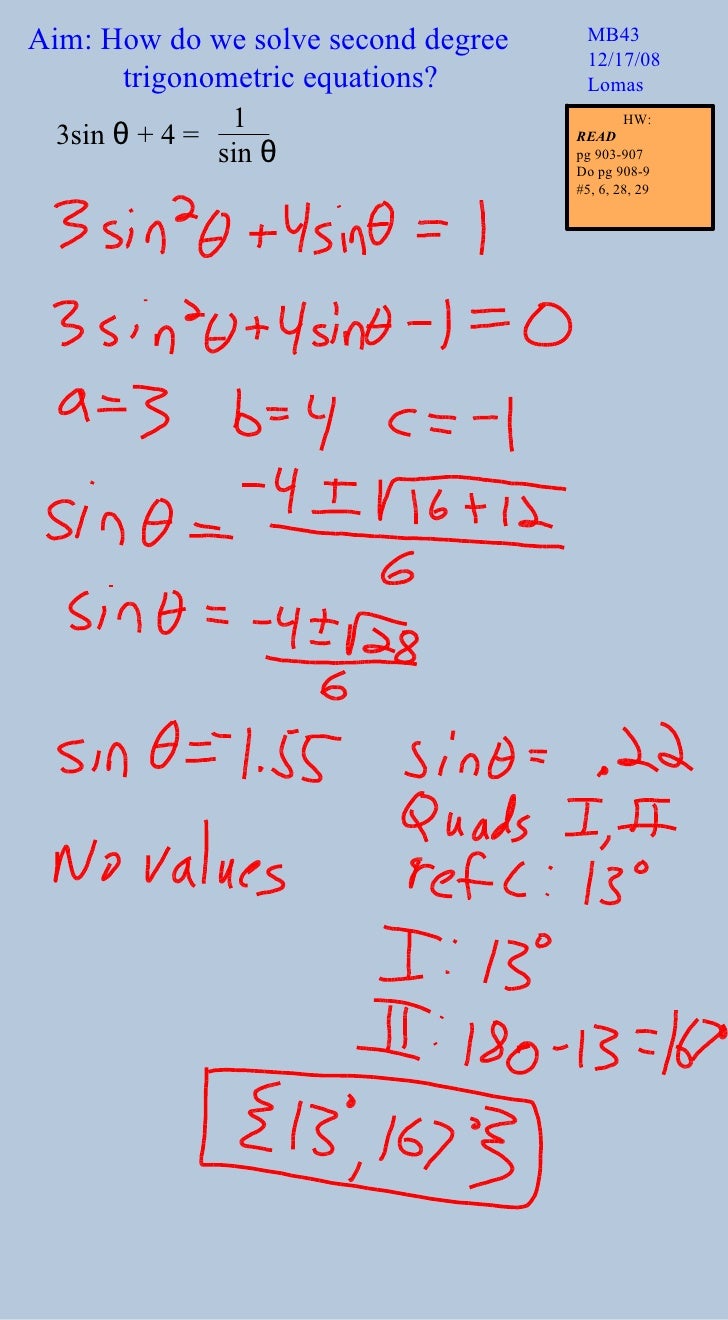 Aim: How do we solve second degree
trigonometric equations?
MB43
12/17/08
Lomas
HW:
READ
pg 903-907
Do pg 908-9
#5, 6, 28, 29
3sin θ + 4 = 1
sin θ
3sin²θ+4sinθ = 1
3sin²θ+4sinθ-1=0
a=3 b=4 c=-1
sinθ = -4±√16+12
6
sinθ = -4±√28
6
sinθ=-1.55
No values
sinθ= .22
Quads I, II
ref∠: 13°
I: 13°
II: 180-13=167
{13°, 167°}